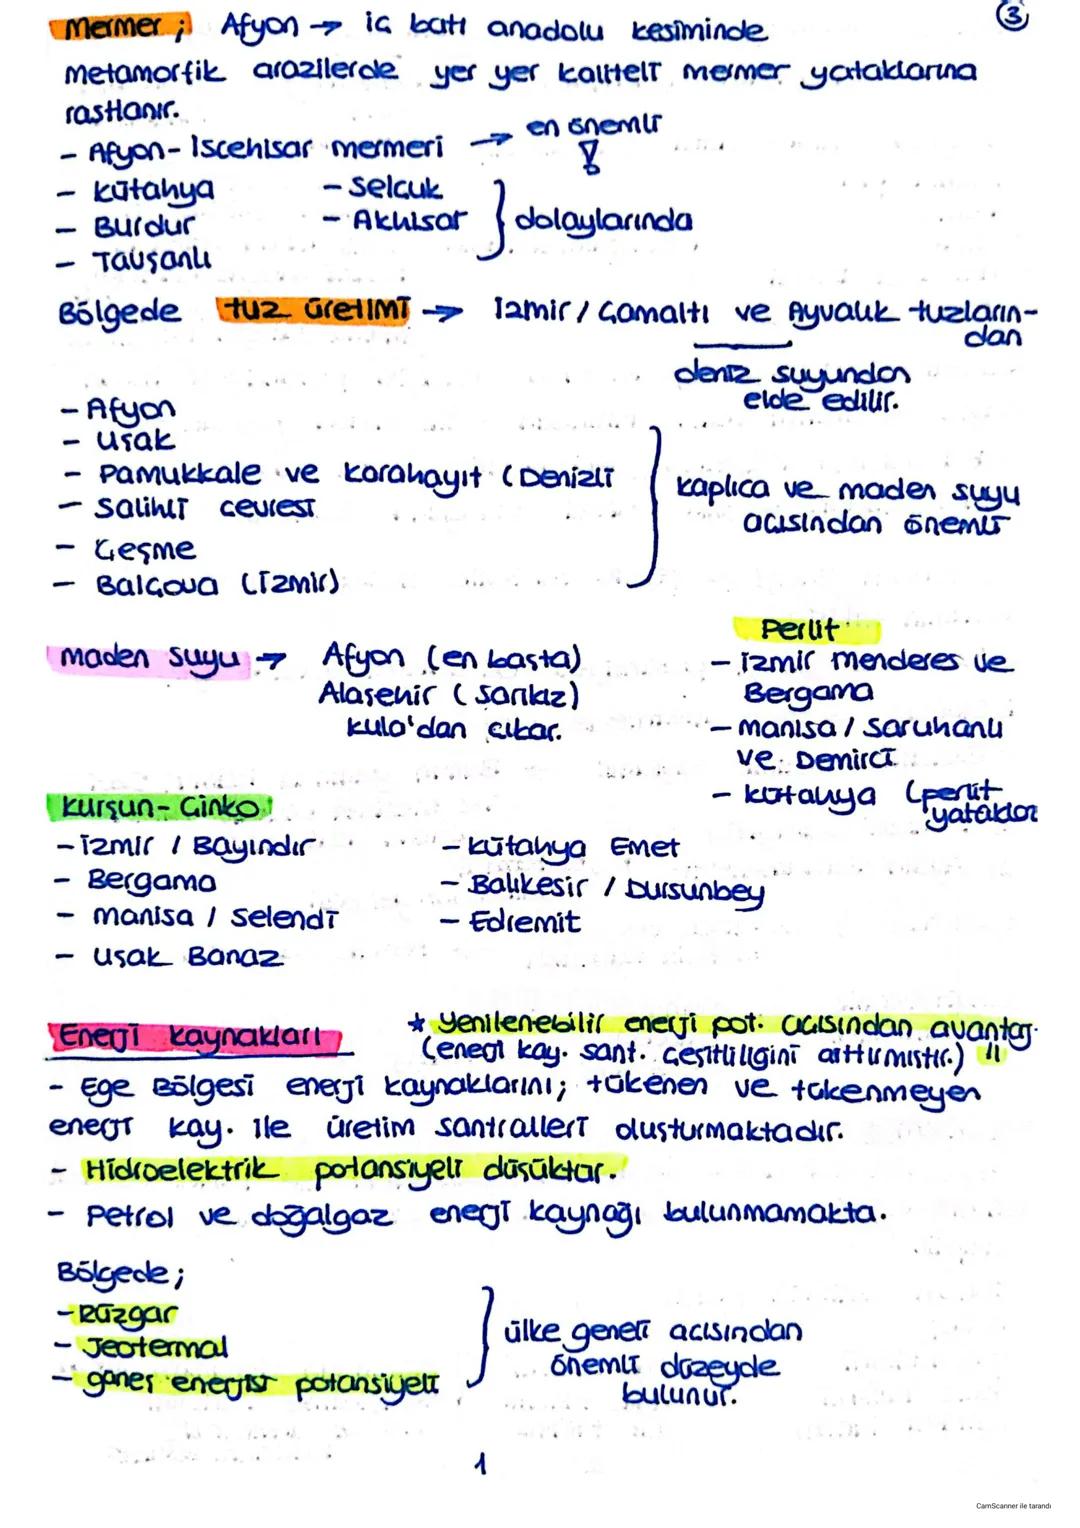 3
Mermer ; Afyon → iç batı anadolu kesiminde
metamorfik arazilerde yer yer kaliteli mermer yataklarına
rastlanır.
- Afyon - İscehisar mermeri → en önemli !
- Kütahya - Selçuk
- Burdur - Akhisar } dolaylarında
- Tavşanlı
Bölgede tuz üretimi → İzmir / Çamaltı ve Ayvalık tuzların-
dan
deniz suyundan
elde edilir.
- Afyon
- Uşak
- Pamukkale ve Karahayıt (Denizli
- Salihli çevresi
- Çeşme
- Balçova (İzmir)
} kaplıca ve maden suyu
açısından önemli
maden suyu → Afyon (en başta)
Alaşehir (sarıkız)
Kula'dan çıkar.
Perlit
- İzmir menderes ve
Bergama
- manisa / Saruhanlı
ve Demirci
- Kütahya (perlit
yatakları
kurşun - Çinko
- İzmir / Bayındır
- Bergama
- manisa / Selendi
- Uşak Banaz
- Kütahya Emet
- Balıkesir / Dursunbey
- Edremit
Enerji kaynakları
★ Yenilenebilir enerji pot. açısından avantaj.
(enerji kay. sant. çeşitliliğini arttırmıştır.) !!
- Ege Bölgesi enerji kaynaklarını; tükenen ve tükenmeyen
enerji kay. ile üretim santralleri oluşturmaktadır.
- Hidroelektrik potansiyeli düşüktür.
- Petrol ve doğalgaz enerji kaynağı bulunmamakta.
Bölgede;
- Rüzgar
- Jeotermal
- güneş enerjisi potansiyeli
} ülke geneli açısından
önemli düzeyde
bulunur.
1
CamScanner ile tarandı